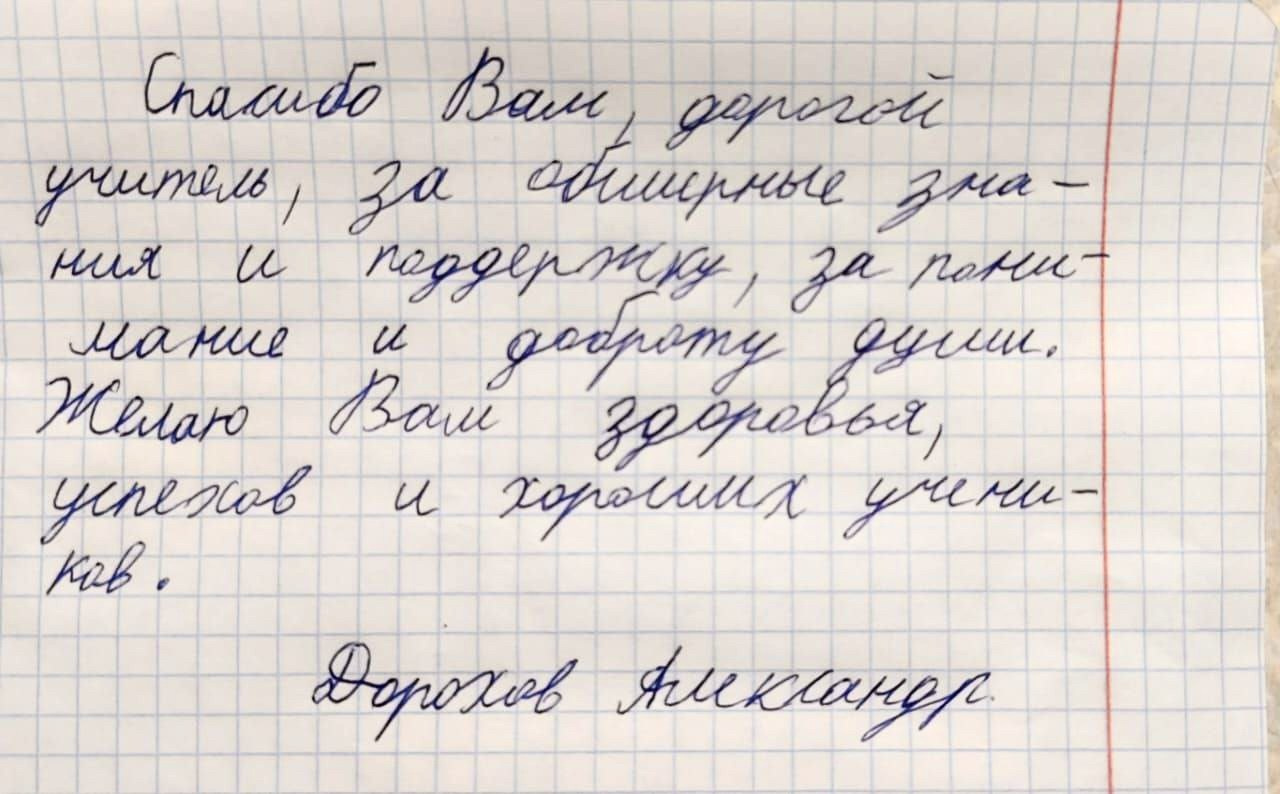 Спасибо Вам, дорогой
учитель, за обширные зна-
ния и поддержку, за пони-
мание и доброту души.
Желаю Вам здоровья,
успехов и хороших учени-
ков.
Дорохов Александр.